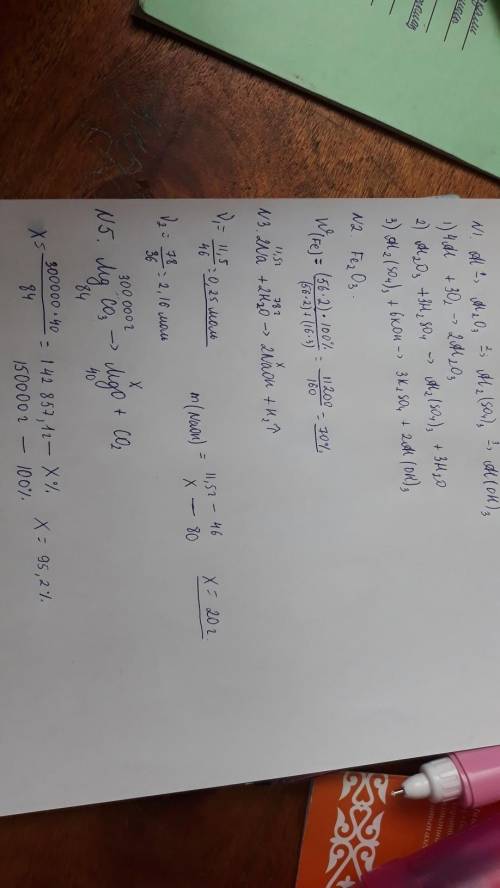 N1. Al ¹→ Al₂O₃ ²→ Al₂(SO₄)₃ ³→ Al(OH)₃
1) 4Al + 3O₂ → 2Al₂O₃
2) Al₂O₃ + 3H₂SO₄ → Al₂(SO₄)₃ + 3H₂O
3) Al₂(SO₄)₃ + 6KOH → 3K₂SO₄ + 2Al(OH)₃
N2 Fe₂O₃.
W(Fe) = (56·2)·100% / (56·2)+(16·3) = 11200/160 = 70%
11,5г 78г x
N3. 2Na + 2H₂O → 2NaOH + H₂↑
ν₁ = 11,5/46 = 0,25 моль
m(NaOH) = 11,5г — 46
x — 80
x = 20г.
ν₂ = 78/36 = 2,16 моль
300000г x
N5. MgCO₃ → MgO + CO₂
84 40
x = 300000·40/84 = 142 857,1г — x%
150000г — 100%
x = 95,2%